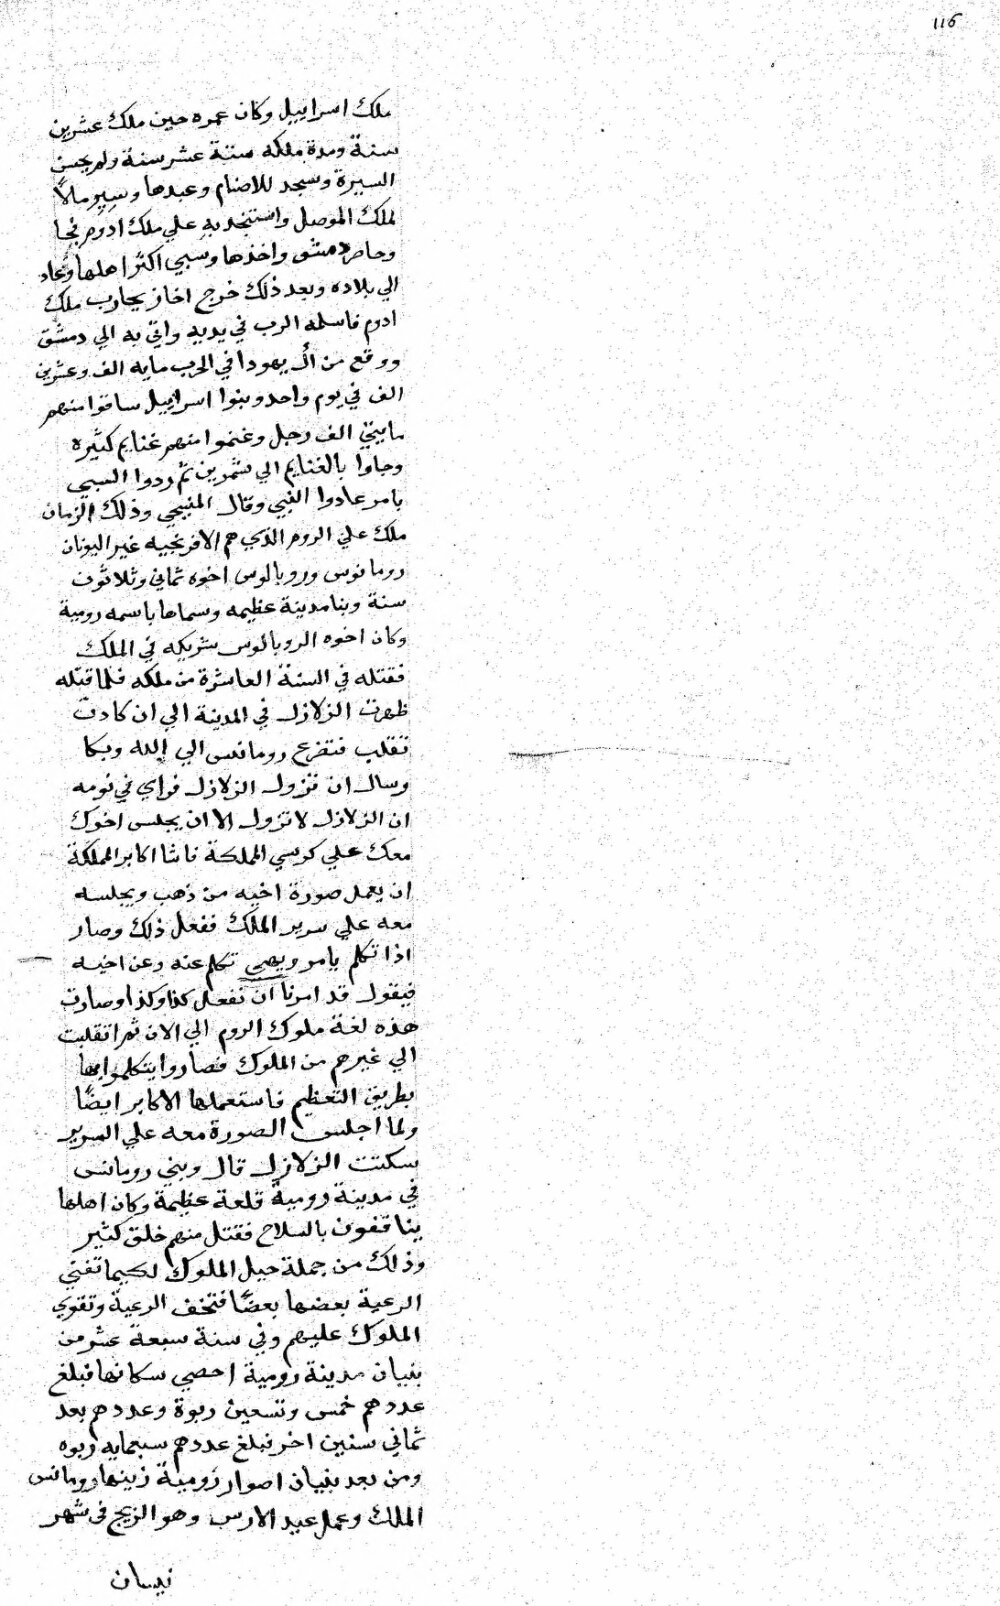 116
ملك اسراييل وكان عمره حين ملك عشرين
سنة ومدة ملكه ستة عشر سنة ولم يحسن
السيرة وسجد للاصنام وعبدها وسير مالًا
لملك الموصل واستنجد به علي ملك ادوم فجا
وحاصر دمشق واخذها وسبي اكثر اهلها وعاد
الي بلاده وبعد ذلك خرج احاز يحارب ملك
ادوم فاسلمه الرب في يديه واتي به الي دمشق
ووقع من ال يهودا في الحرب مايه الف وعشرين
الف في يوم واحد وبنوا اسراييل ساقوا منهم
مايتي الف رجل وغنموا منهم غنايم كثيره
وجاوا بالغنايم الي شمرين ثم ردوا السبي
بامر عادوا النبي وقال المنبجي وذلك الزمان
ملك علي الروم الذي هم الافرنجيه غير اليونان
رومانوس وروبالوس اخوه ثماني وثلاثون
سنة وبنا مدينة عظيمه وسماها باسمه رومية
وكان اخوه الروبالوس شريكه في الملك
فقتله في السنة العاشرة من ملكه فلما قتله
ظهرت الزلازل في المدينة الي ان كادت
تنقلب فتضرع رومانس الي الله وبكا
وسال ان تزول الزلازل فراي في نومه
ان الزلازل لا تزول الا ان يجلس اخوك
معك علي كرسي المملكة فاشا اكابر المملكة
ان يعمل صورة اخيه من ذهب ويجلسه
معه علي سرير الملك ففعل ذلك وصار
اذا تكلم يامر وينهي تكلم عنه وعن اخيه
فيقول قد امرنا ان نفعل كذا وكذا وصارت
هذه لغة ملوك الروم الي الان ثم انقلبت
الي غيرهم من الملوك فصاروا يتكلموا بها
بطريق التعظيم فاستعملها الاكابر ايضًا
ولما اجلس الصورة معه علي السرير
سكنت الزلازل قال وبني رومانس
في مدينة رومية قلعة عظيمة وكان اهلها
يناقفون بالسلاح فقتل منهم خلق كثير
وذلك من جملة حيل الملوك لكيما تفني
الرعية بعضها بعضًا فتخف الرعية وتقوي
الملوك عليهم وفي سنة سبعة عشر من
بنيان مدينة رومية احصي سكانها فبلغ
عددهم خمس وتسعين ربوة وعددهم بعد
ثماني سنين اخر فبلغ عددهم سبعمايه ربوه
ومن بعد بنيان اصوار رومية زينها رومانس
الملك وعمل عيد الارس وهو الزيج في شهر
نيسان